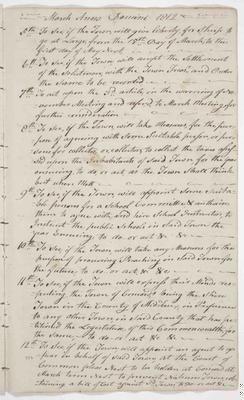 March Anno Domini 1812
5th To See if the Town will give liberty for Sheep to
go at Large from the 15th Day of March to the
first day of May next
6th To See if the Town will accept the Settlement
of the Selectmen with the Town Treas. and Order
the Same to be recorded
7th To act upon the 3d article in the warning of
November Meeting and referd to March Meeting for
further consideration
8th To See if the Town will take Measures for the pur-
pose of agreeing with Some Suitable person or per-
sons for collector or collectors to collect the taxes
upon the Inhabitants of Said Town for the year
ensuing to do or act as the Town Shall think
best when Met
9th To See if the Town will appoint Some Suita-
ble persons for a School Committee & authorise
them to agree with and hire School Instructors to
instruct the public Schools in Said Town the
year Ensuing to do or act &c
10th To See if the Town will take any Measures for the
purpose of procuring Preaching in Said Town for
the future to do or act &c &c
11th To See if the Town will express their Minds res-
pecting the Town of Concord being the Shire
Town in the County of Middlesex, in Preference
to any other Town in Said County that has pe-
the Legislature of this Commonwealth for
the Same, to do or act &c &c
12th To See if the Town will appoint an agent to ap-
pear in behalf of Said Town at the Court of
Common pleas Next to be holden at Concord
March term Next to prevent
a bill of Cost against Sd Town &c or act &c